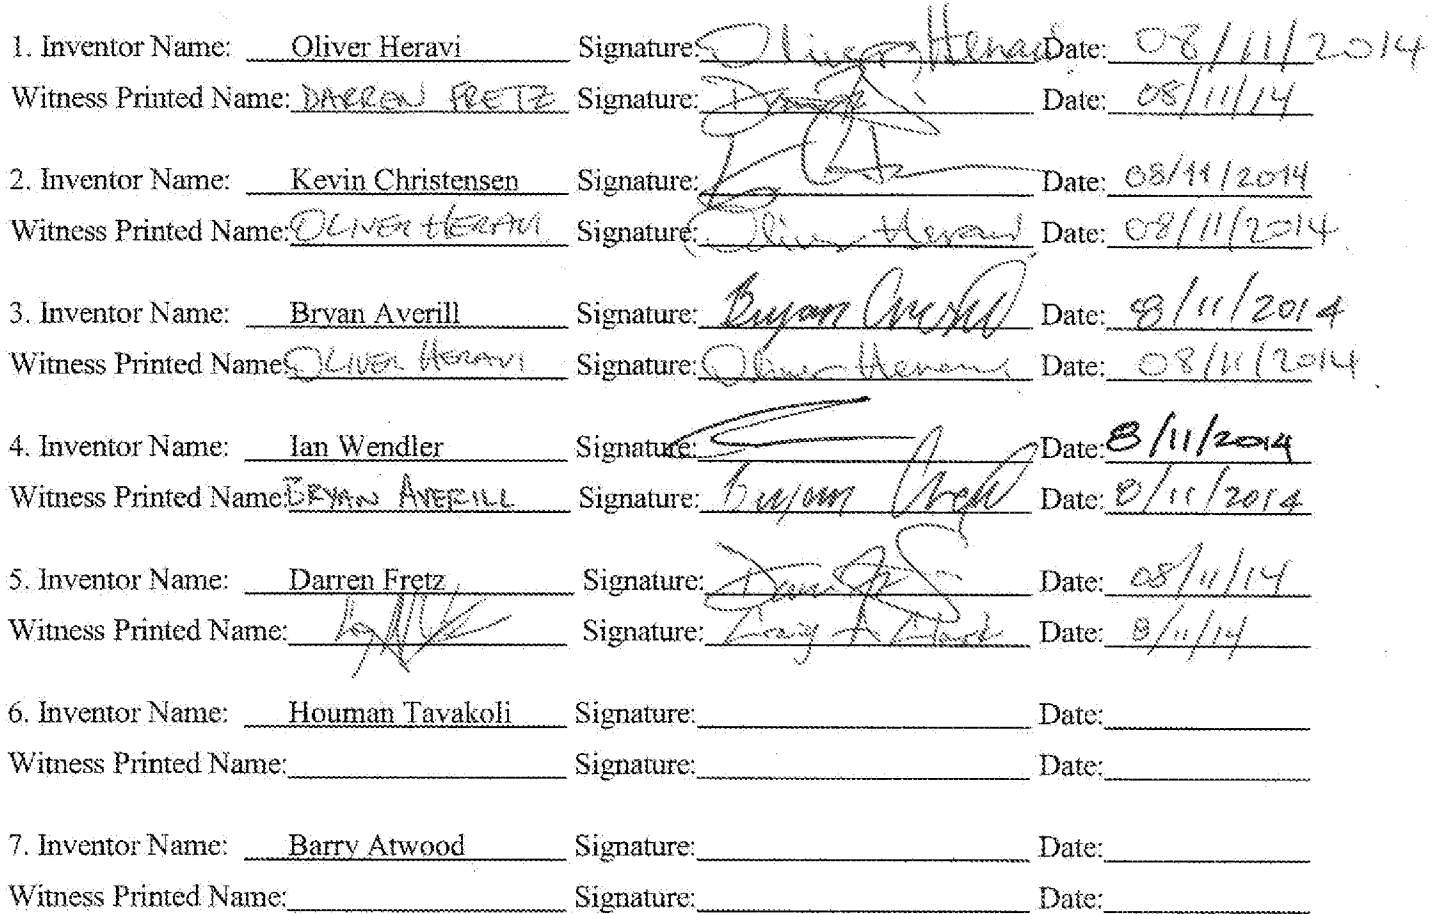 1. Inventor Name: Oliver Heravi Signature: Oliver Heravi Date: 08/11/2014
Witness Printed Name: DARREN FRETZ Signature: Date: 08/11/14
2. Inventor Name: Kevin Christensen Signature: Date: 08/11/2014
Witness Printed Name: OLIVER HERAVI Signature: Oliver Heravi Date: 08/11/2014
3. Inventor Name: Bryan Averill Signature: Bryan Averill Date: 8/11/2014
Witness Printed Name: OLIVER HERAVI Signature: Oliver Heravi Date: 08/11/2014
4. Inventor Name: Ian Wendler Signature: Date: 8/11/2014
Witness Printed Name: BRYAN AVERILL Signature: Bryan Averill Date: 8/11/2014
5. Inventor Name: Darren Fretz Signature: Date: 08/11/14
Witness Printed Name: Signature: Craig A Date: 8/11/14
6. Inventor Name: Houman Tavakoli Signature: Date:
Witness Printed Name: Signature: Date:
7. Inventor Name: Barry Atwood Signature: Date:
Witness Printed Name: Signature: Date: